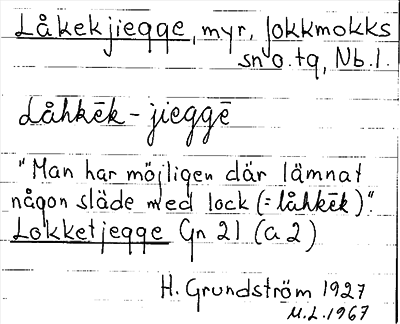 Låkekjiegge, myr, Jokkmokks
sn o. tg, Nb.l.
låhkēk-jieggē
"Man har möjligen där lämnat
någon släde med lock (=låhkēk)".
Lokketjegge Gn 21 (a2)
H. Grundström 1927
M.L. 1967